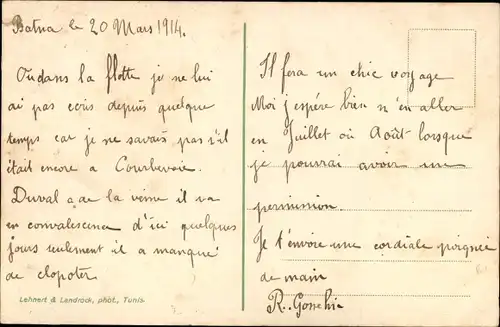 Batna le 20 Mars 1914.
Oudans la flotte je ne lui
ai pas ecris depuis quelque
temps car je ne savais pas s'il
était encore a Courbevoie.
Duval a de la veine il va
en convalescence d'ici quelques
jours seulement il a manqué
de clopoter
Lehnert & Landrock, phot., Tunis.
Il fera un chic voyage
Moi j'espère bien m'en aller
en Juillet où Août lorsque
je pourrai avoir une
permission.
Je t'envoie une cordiale poignée
de main
R. Gossehin